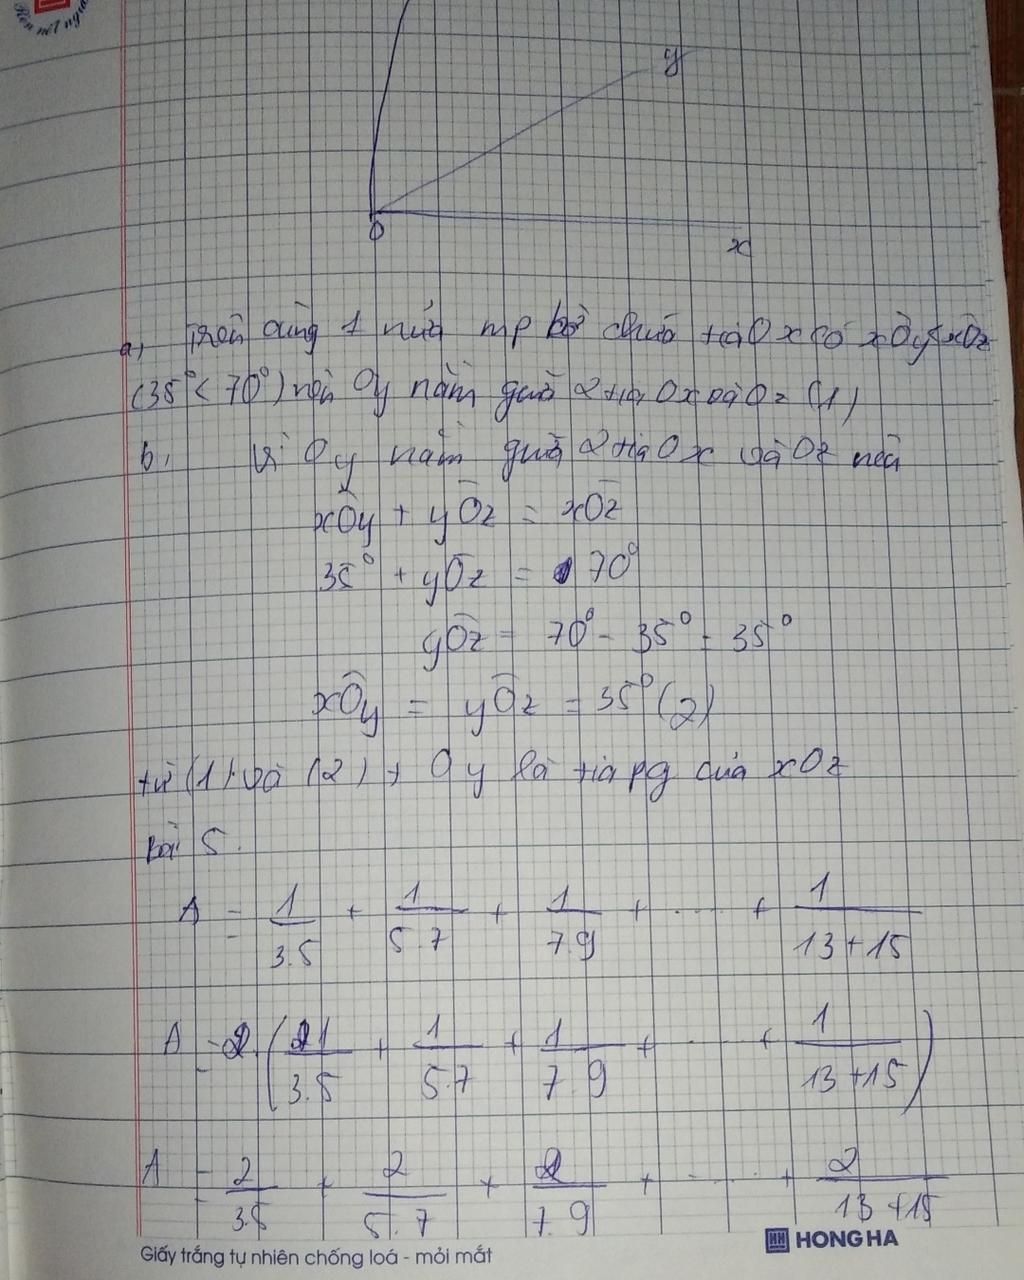 Rèn nét người
y
O
x
a, Trên cùng 1 nửa mp bờ chứa tia Ox có xÔy < xÔz
(35° < 70°) nên Oy nằm giữa 2 tia Ox và Oz (1)
b, Vì Oy nằm giữa 2 tia Ox và Oz nên
xÔy + yÔz = xÔz
35° + yÔz = 70°
yÔz = 70° - 35° = 35°
xÔy = yÔz = 35° (2)
từ (1) và (2), Oy là tia pg của xOz
Bài 5.
A = 1/3.5 + 1/5.7 + 1/7.9 + ..... + 1/13+15
A = 2.(1/3.5 + 1/5.7 + 1/7.9 + ..... + 1/13+15)
A = 2/3.5 + 2/5.7 + 2/7.9 + ..... + 2/13+15
Giấy trắng tự nhiên chống loá - mỏi mắt
HH HONG HA